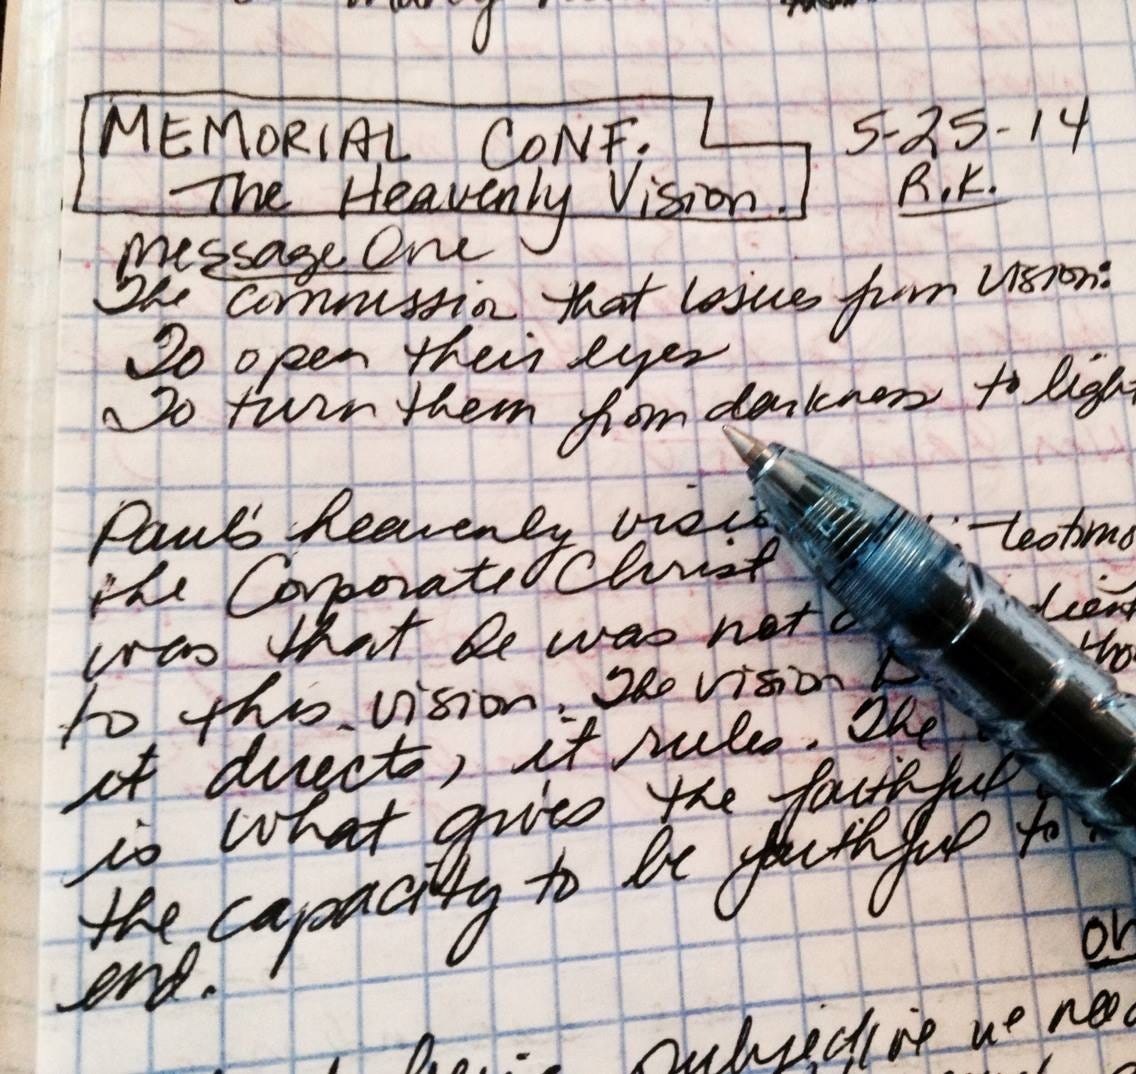 many
MEMORIAL CONF.
5-25-14
The Heavenly Vision.
R.K.
Message One
The commission that issues from vision:
To open their eyes
To turn them from darkness to light
Paul's heavenly visi testimo
the Corporate Christ
was that he was not dient
to this vision. The vision
it directs, it rules. The
is what gives the faithful
the capacity to be faithful to
end.
on
subjective we need